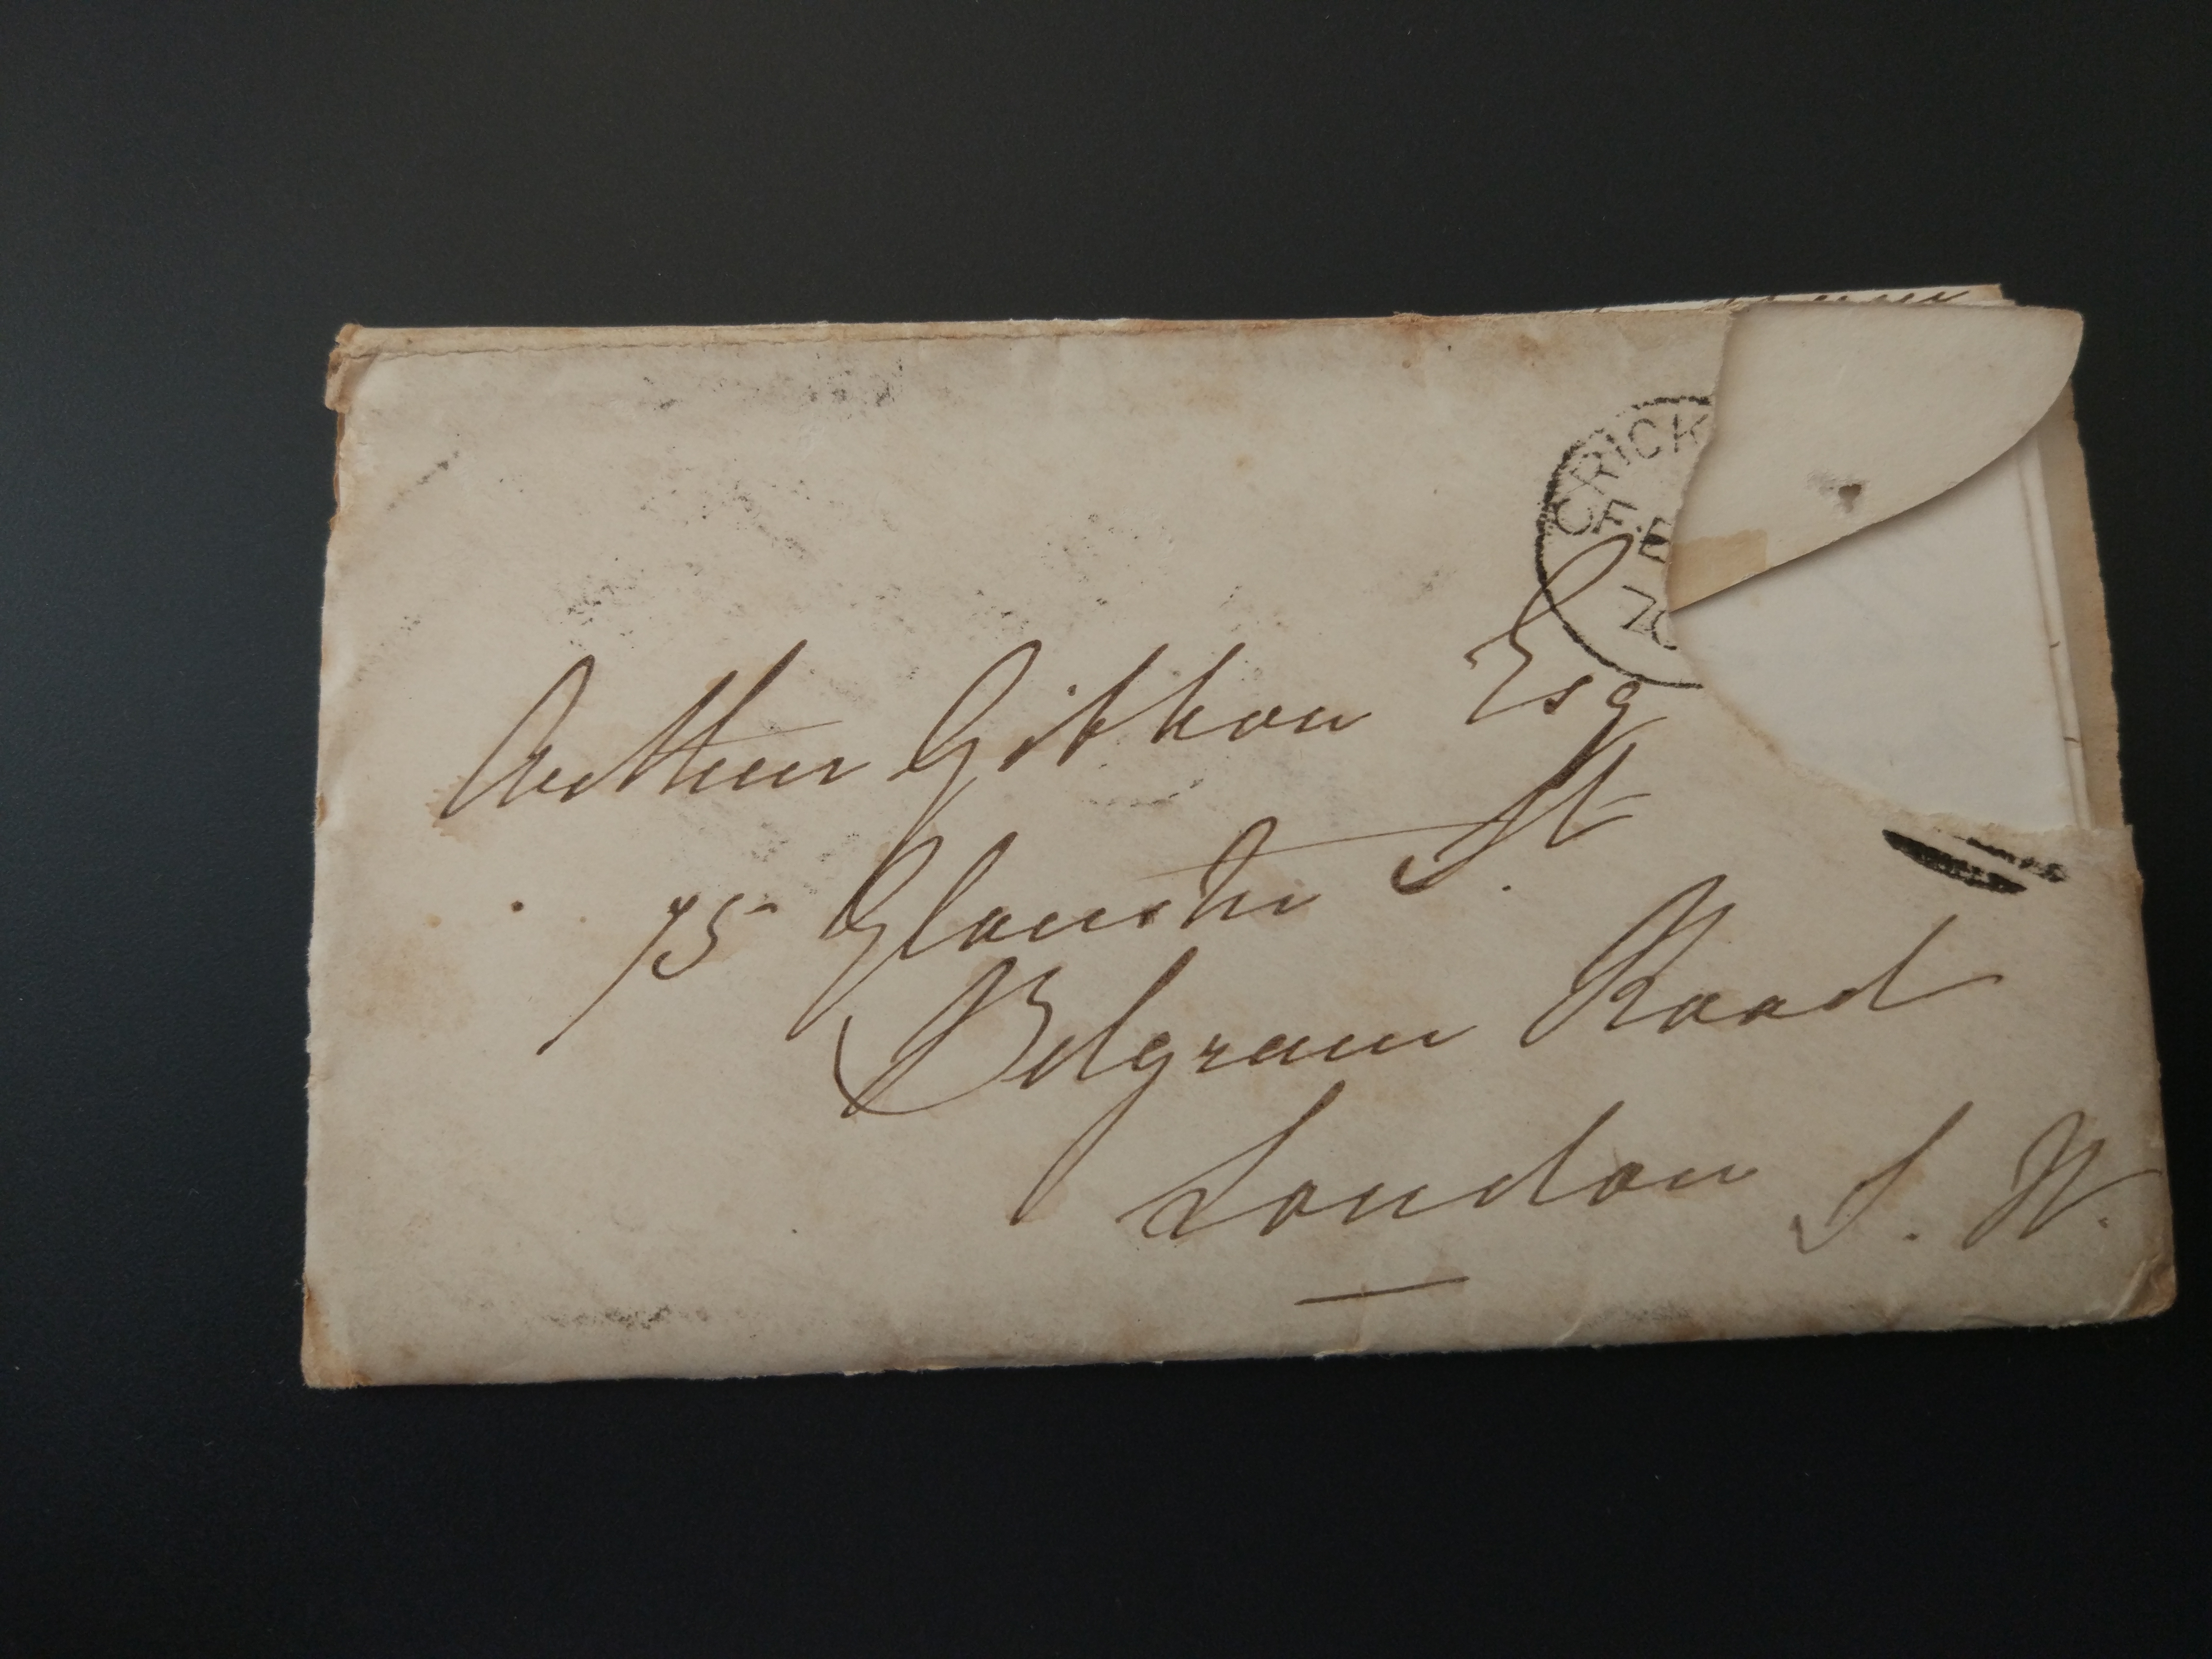 CRICK
FE
70
Arthur Gibbon Esq
75 Gloucster St
Belgrave Road
London S. W.